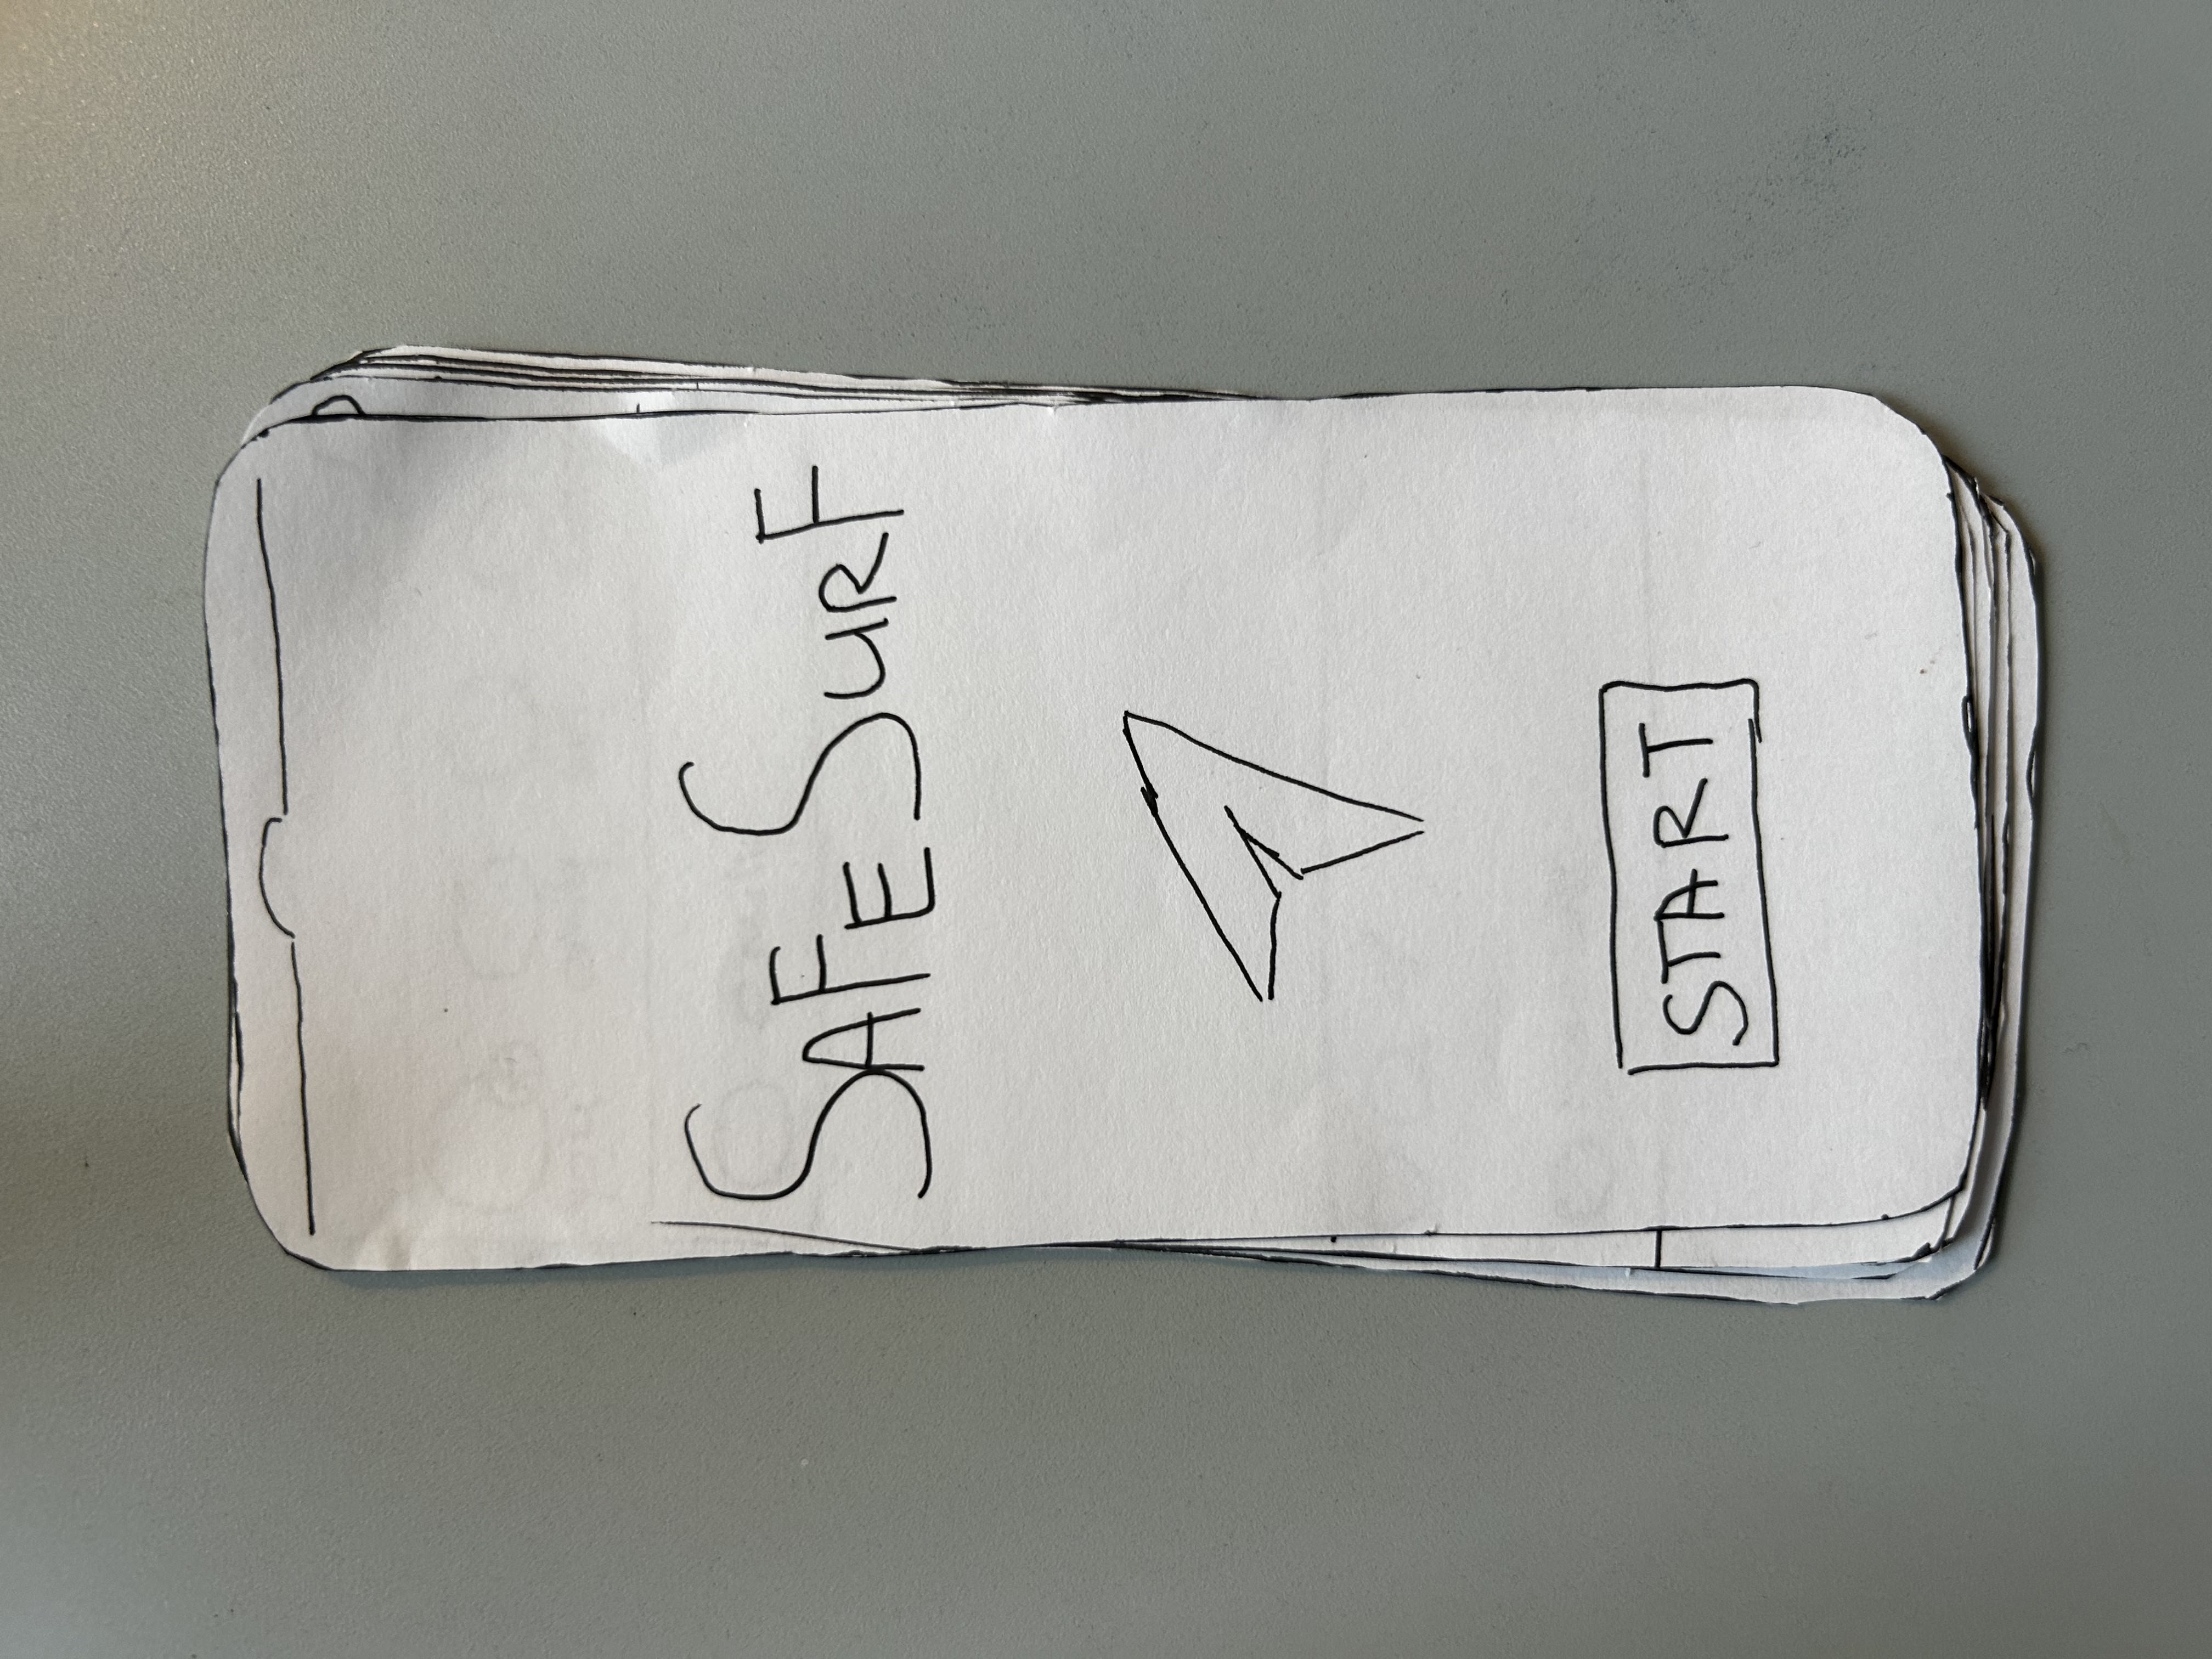 SAFESURF
START